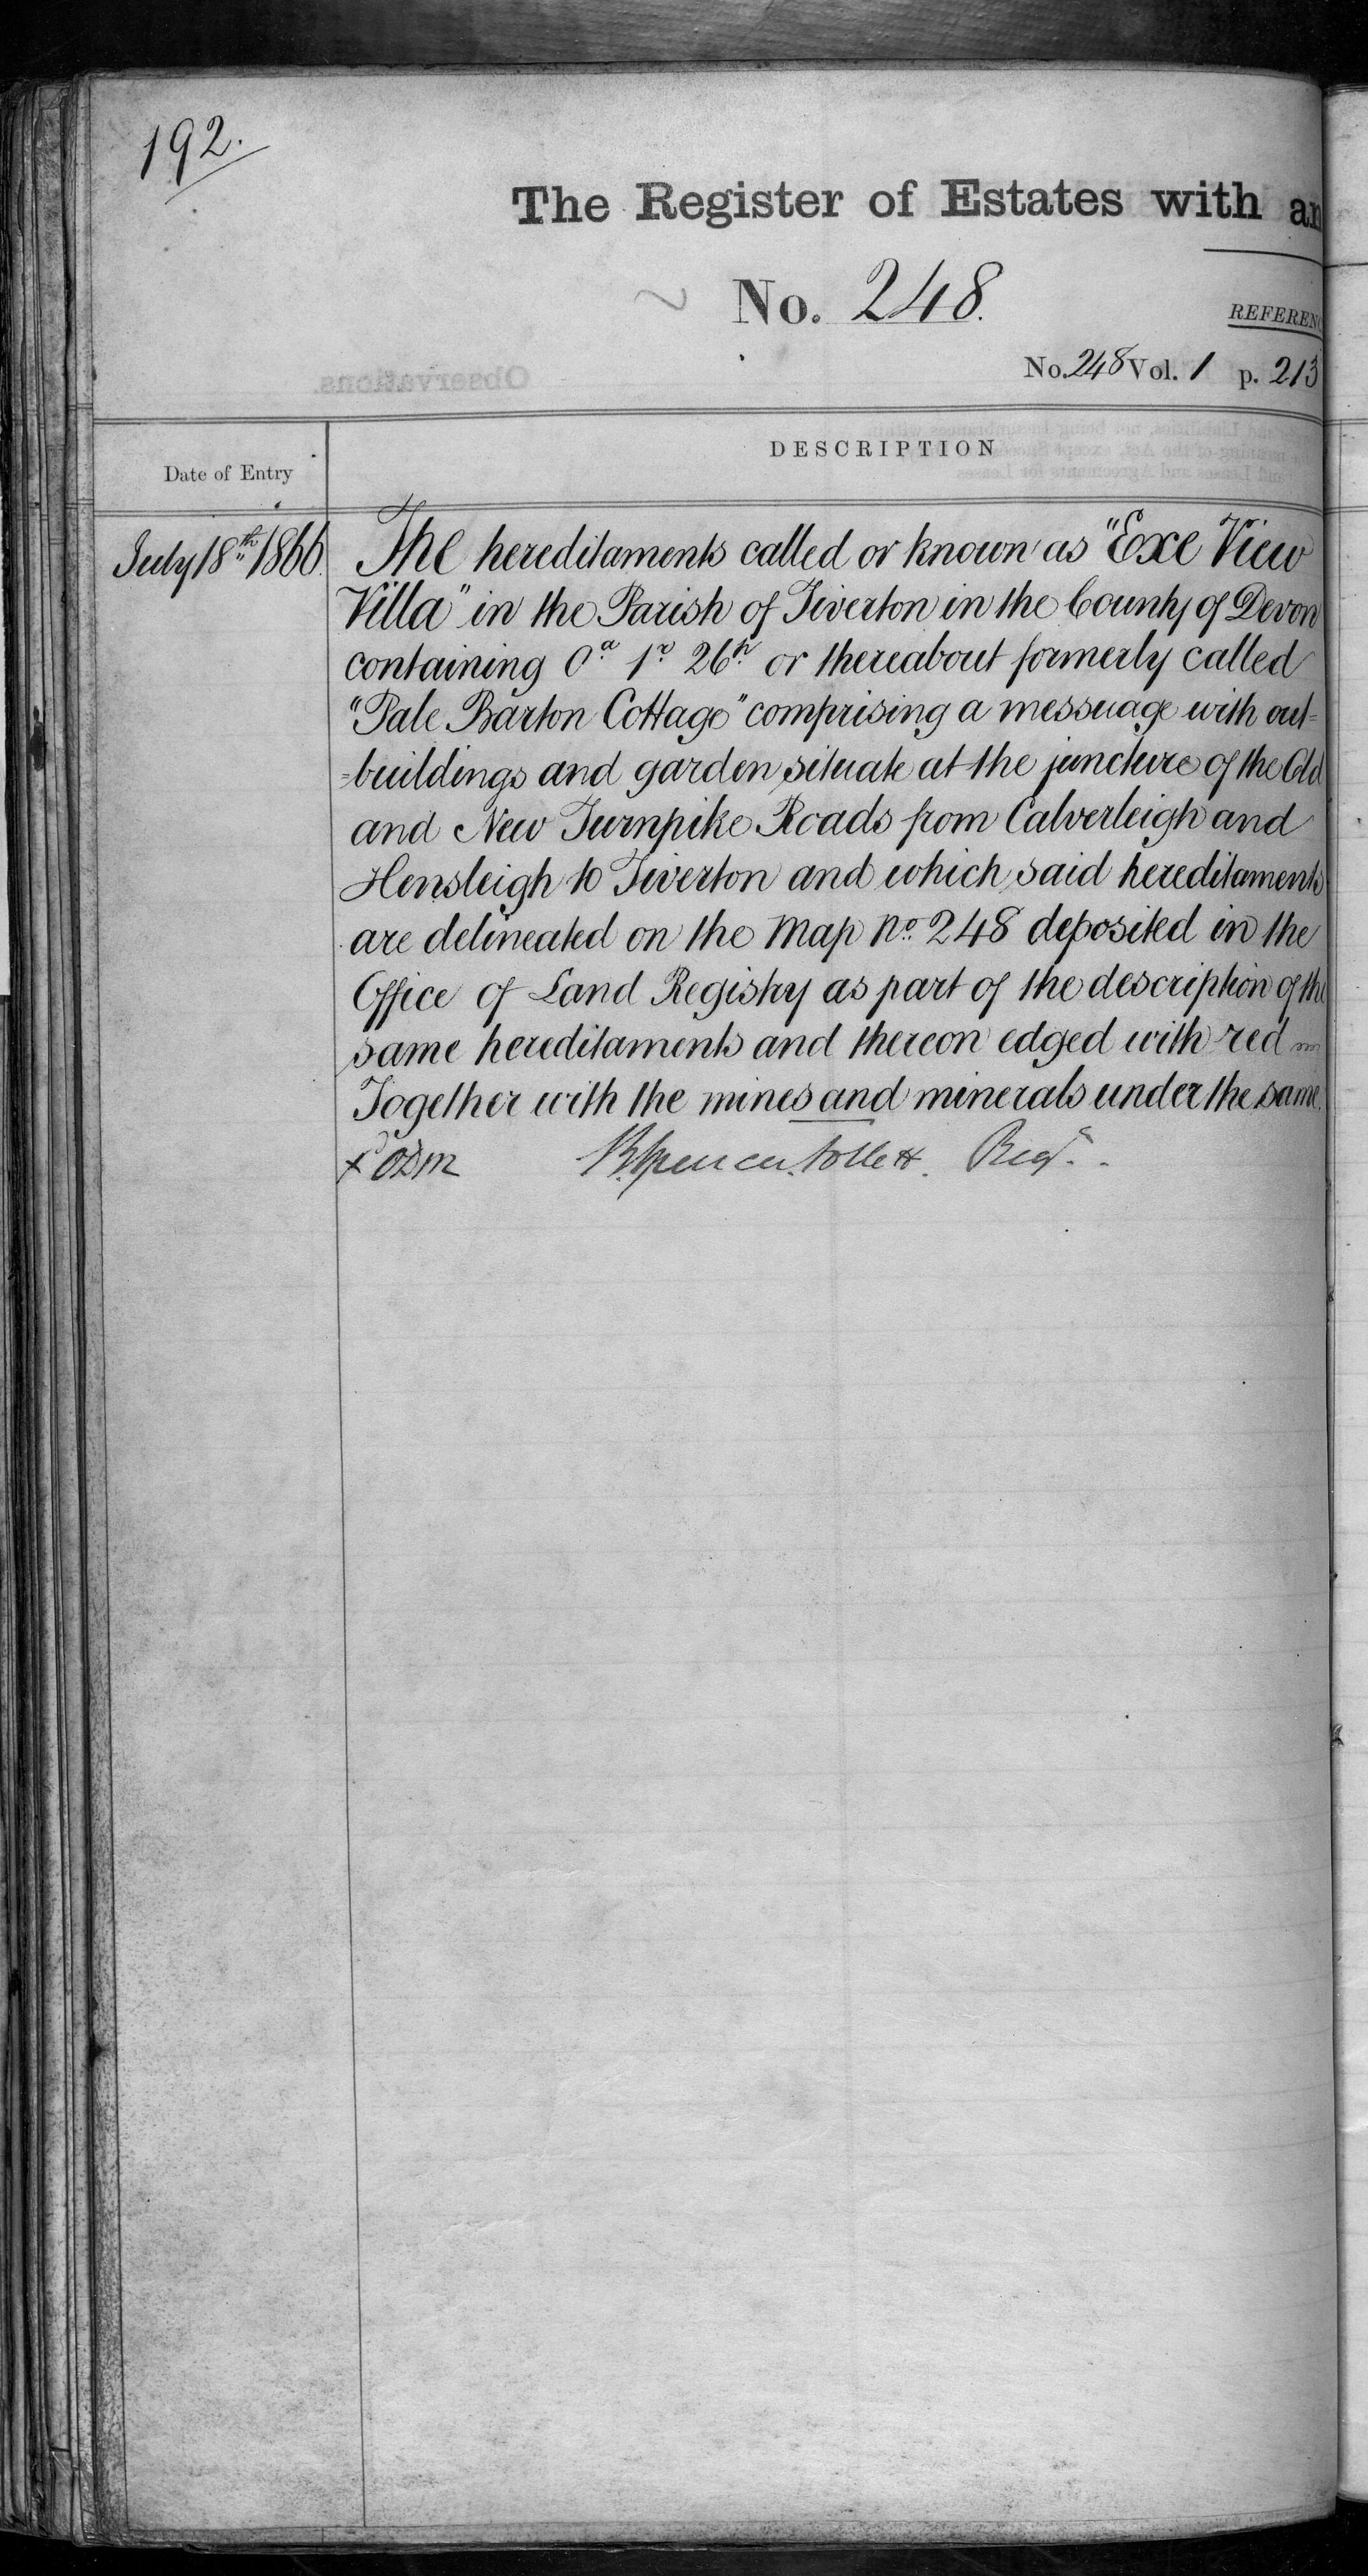 192.
The Register of Estates with an
No. 248.
REFEREN
No. 248 Vol. 1 p. 213
Observations.
DESCRIPTION
Date of Entry
July 18th 1866. The hereditaments called or known as "Exe View
Villa" in the Parish of Tiverton in the County of Devon
containing 0a 1r 26p or thereabout formerly called
"Pale Barton Cottage" comprising a messuage with out=
=buildings and garden situate at the juncture of the Old
and New Turnpike Roads from Calverleigh and
Hensleigh to Tiverton and which said hereditaments
are delineated on the Map No. 248 deposited in the
Office of Land Registry as part of the description of the
same hereditaments and thereon edged with red
Together with the mines and minerals under the same.
Spencer Follett. Regr.